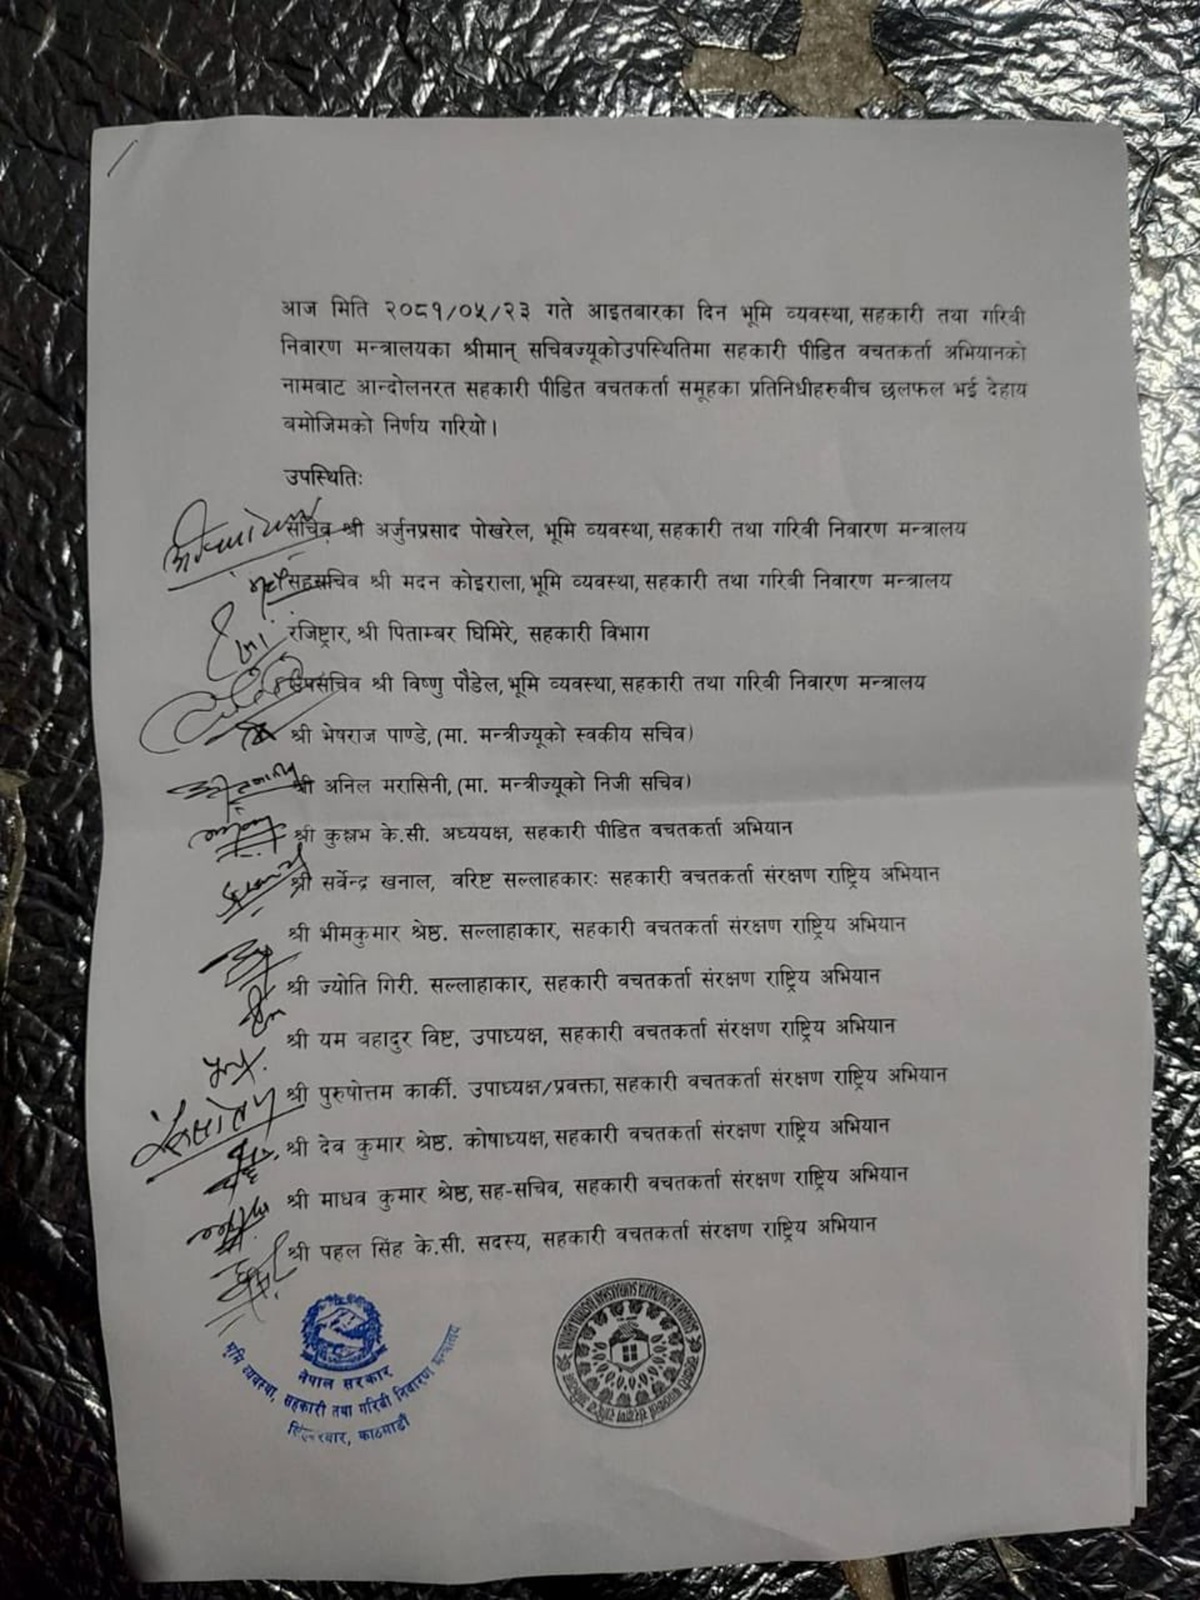 आज मिति २०८१/०५/२३ गते आइतबारका दिन भूमि व्यवस्था, सहकारी तथा गरिवी
निवारण मन्त्रालयका श्रीमान् सचिवज्यूकोउपस्थितिमा सहकारी पीडित वचतकर्ता अभियानको
नामबाट आन्दोलनरत सहकारी पीडित वचतकर्ता समूहका प्रतिनिधीहरुबीच छलफल भई देहाय
बमोजिमको निर्णय गरियो।
उपस्थितिः
सचिव श्री अर्जुनप्रसाद पोखरेल, भूमि व्यवस्था, सहकारी तथा गरिवी निवारण मन्त्रालय
सहसचिव श्री मदन कोइराला, भूमि व्यवस्था, सहकारी तथा गरिवी निवारण मन्त्रालय
रजिष्ट्रार, श्री पिताम्बर घिमिरे, सहकारी विभाग
उपसचिव श्री विष्णु पौडेल, भूमि व्यवस्था, सहकारी तथा गरिवी निवारण मन्त्रालय
श्री भेषराज पाण्डे, (मा. मन्त्रीज्यूको स्वकीय सचिव)
श्री अनिल मरासिनी, (मा. मन्त्रीज्यूको निजी सचिव)
श्री के.सी. अध्ययक्ष, सहकारी पीडित वचतकर्ता अभियान
श्री सर्वेन्द्र खनाल, वरिष्ट सल्लाहकारः सहकारी वचतकर्ता संरक्षण राष्ट्रिय अभियान
श्री भीमकुमार श्रेष्ठ. सल्लाहाकार, सहकारी वचतकर्ता संरक्षण राष्ट्रिय अभियान
श्री ज्योति गिरी. सल्लाहाकार, सहकारी वचतकर्ता संरक्षण राष्ट्रिय अभियान
श्री यम वहादुर विष्ट, उपाध्यक्ष, सहकारी वचतकर्ता संरक्षण राष्ट्रिय अभियान
श्री पुरुषोत्तम कार्की. उपाध्यक्ष/प्रवक्ता, सहकारी वचतकर्ता संरक्षण राष्ट्रिय अभियान
श्री देव कुमार श्रेष्ठ. कोषाध्यक्ष, सहकारी वचतकर्ता संरक्षण राष्ट्रिय अभियान
श्री माधव कुमार श्रेष्ठ, सह-सचिव, सहकारी वचतकर्ता संरक्षण राष्ट्रिय अभियान
श्री पहल सिंह के.सी. सदस्य, सहकारी वचतकर्ता संरक्षण राष्ट्रिय अभियान
नेपाल सरकार
भूमि व्यवस्था, सहकारी तथा गरिवी निवारण मन्त्रालय
काठमाडौं